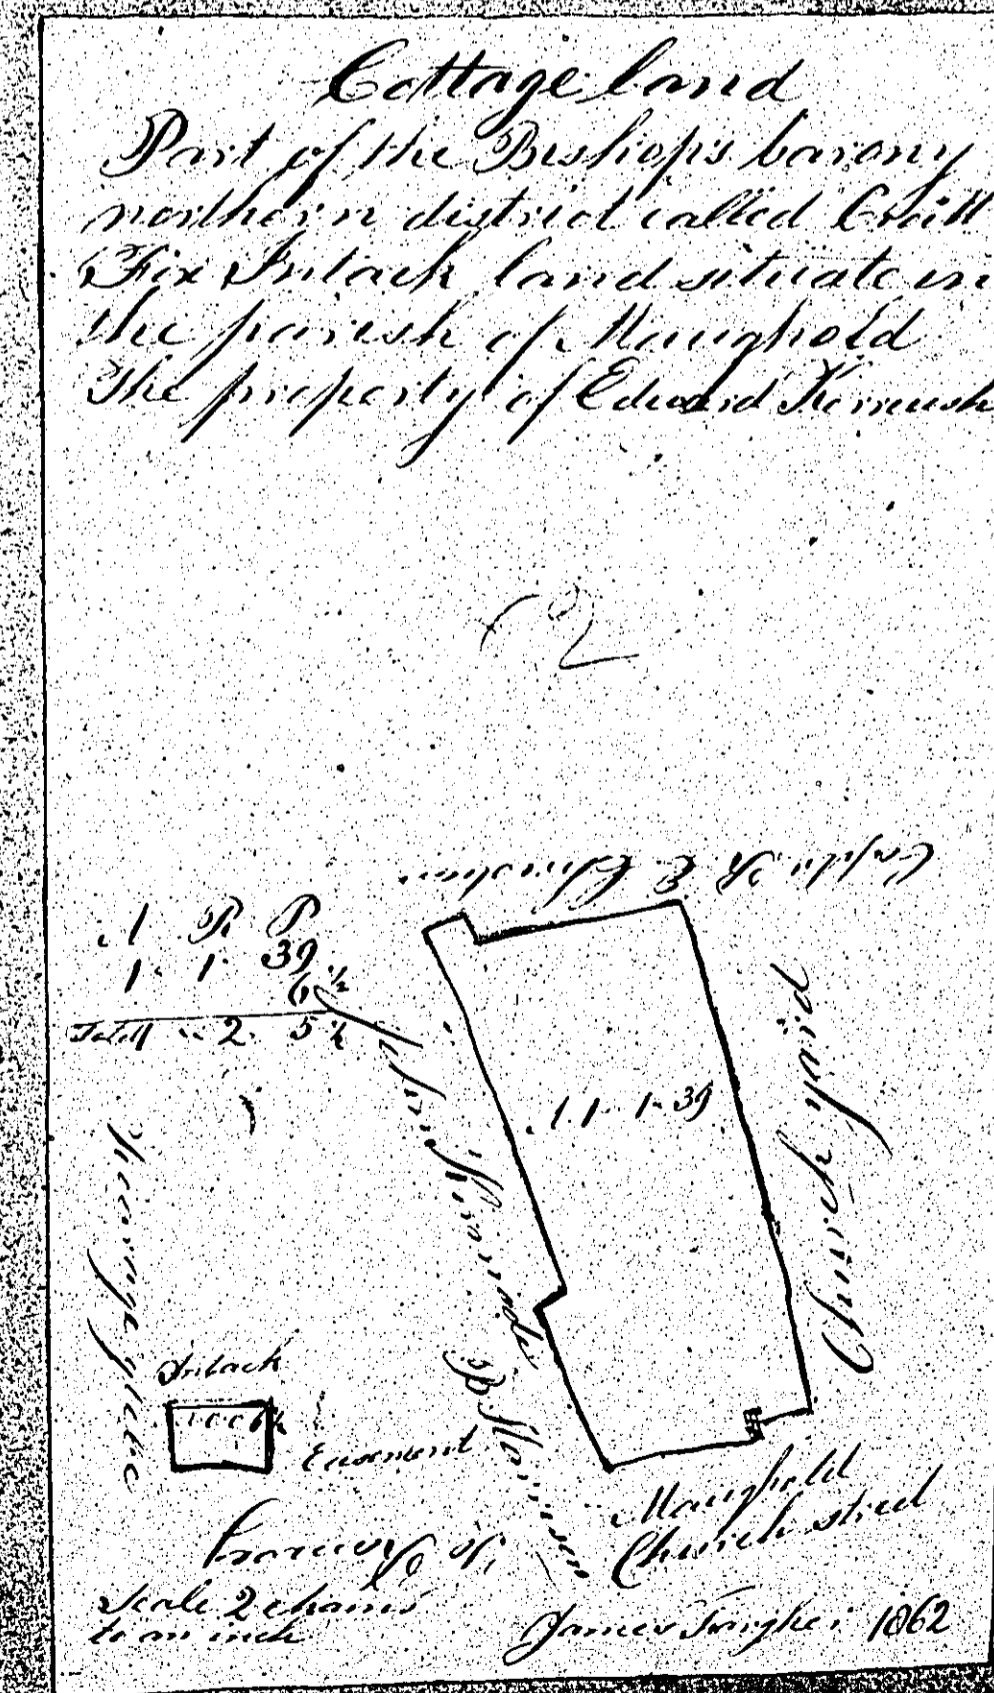 Cottage land
Part of the Bishops barony
northern district called Croit
Fix Intack land situate in
the parish of Maughold
The property of Edward Kerruish
2
Captn E Christian
A R P
1 1 39
6½
Total 2 5½
A 1 1 39
Vicarage glebe
Intack
0 0 6½
Easement
Maughold
Church street
to Ramsey
Scale 2 chains
to an inch
James 1862